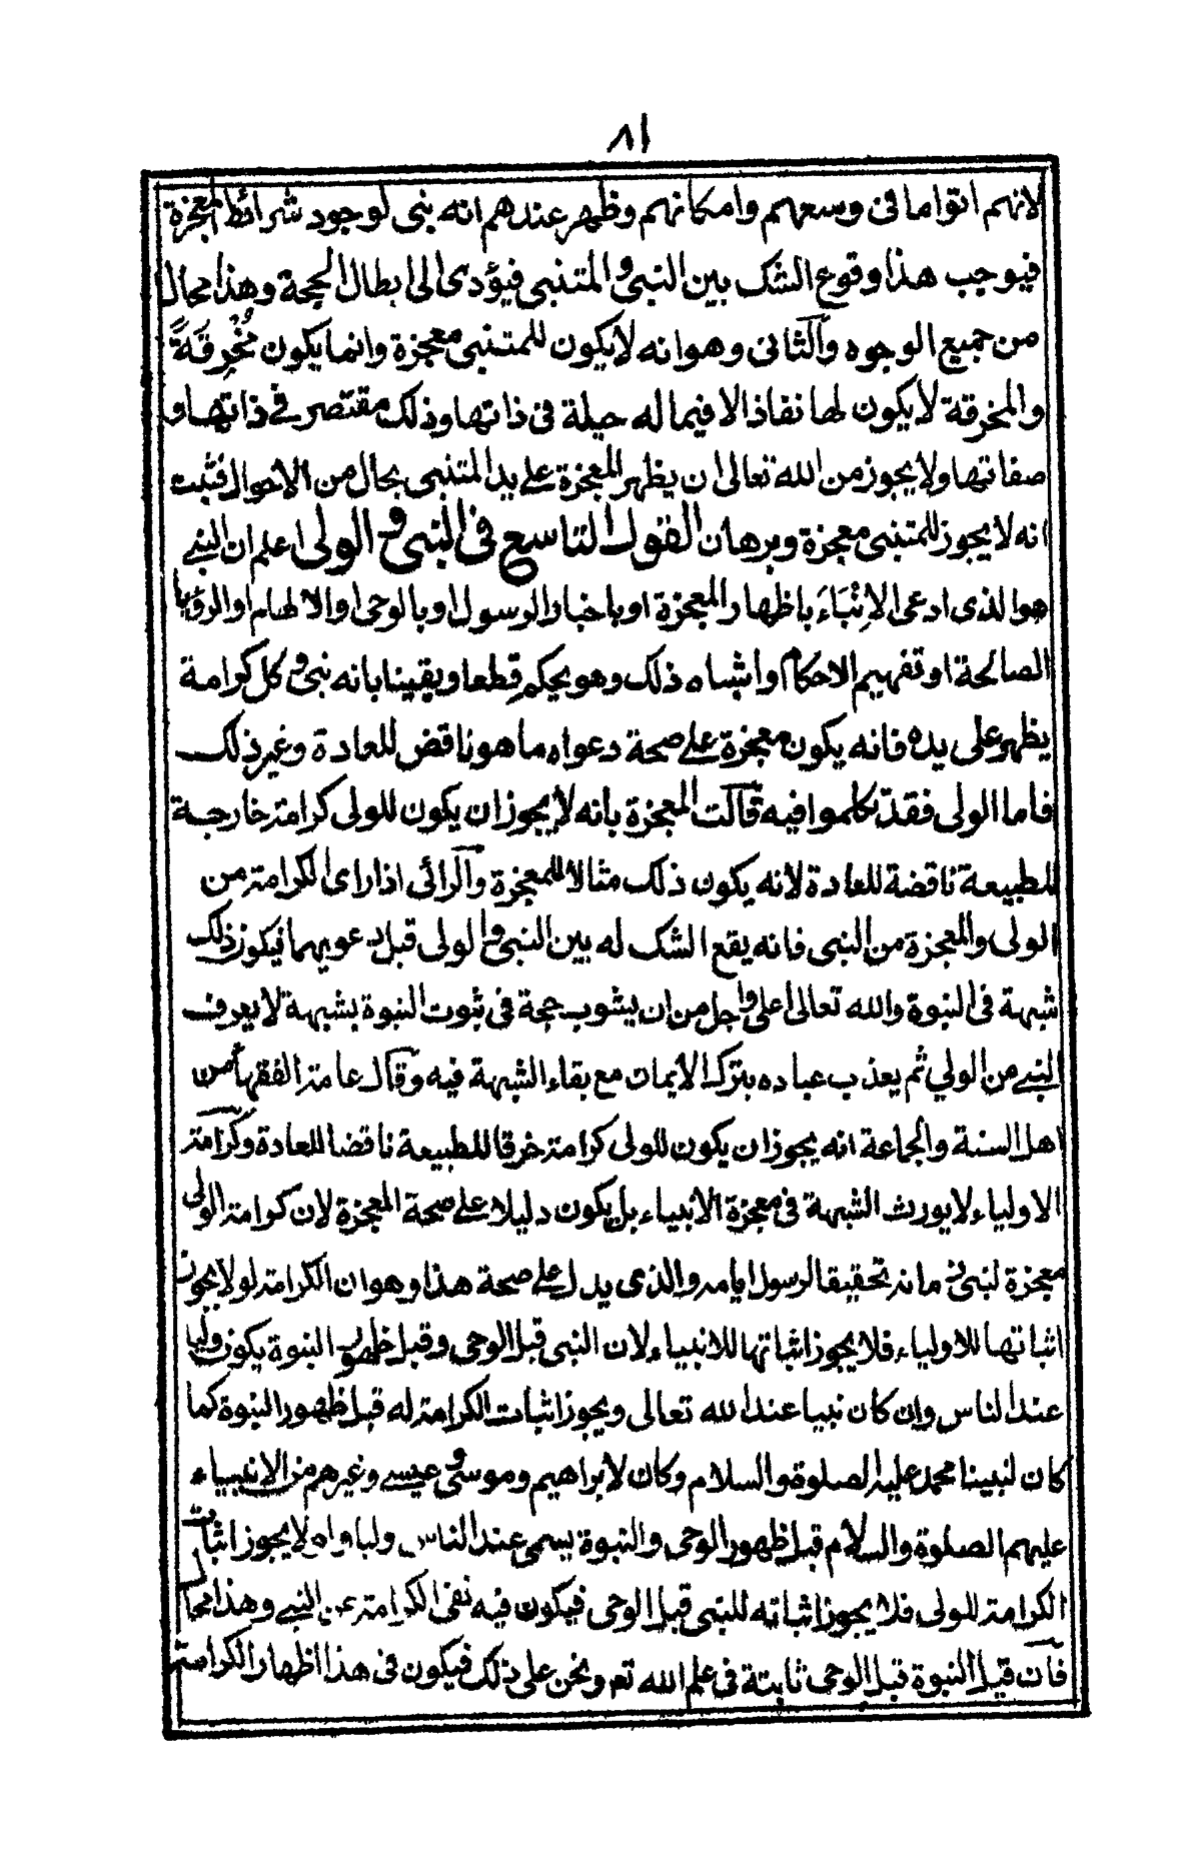 ٨١
لانهم اتوا ما فى وسعهم وامكانهم وظهر عندهم انه نبى لوجود شرائط المعجزة
فيوجب هذا وقوع الشك بين النبى والمتنبى فيؤدى الى ابطال الحجة وهذا محال
من جميع الوجوه والثانى وهو انه لا يكون للمتنبى معجزة وانما يكون مخرقة
والمخرقة لا يكون لها نفاذ الا فيما له حيلة فى ذاتها وذلك مقتصر فى ذاتها و
صفاتها ولا يجوز من الله تعالى ان يظهر المعجزة على يد المتنبى بحال من الاحوال فثبت
انه لا يجوز للمتنبى معجزة وبرهان القول التاسع فى النبى والولى اعلم ان النبى
هو الذى ادعى الانباء باظهار المعجزة او باخبار الرسول او بالوحى او الالهام او الرؤيا
الصالحة او تفهيم الاحكام او اشباه ذلك وهو يحكم قطعا ويقينا بانه نبى وكل كرامة
يظهر على يده فانه يكون معجزة على صحة دعواه ما هو ناقض للعادة وغير ذلك
فاما الولى فقد تكلموا فيه قالت المعجزة بانه لا يجوز ان يكون للولى كرامة خارجة
للطبيعة ناقضة للعادة لانه يكون ذلك مثالا للمعجزة والرائى اذا راى الكرامة من
الولى والمعجزة من النبى فانه يقع الشك له بين النبى والولى قبل دعويهما فيكون ذلك
شبهة فى النبوة والله تعالى اعلى واجل من ان يشوب حجة فى ثبوت النبوة بشبهة لا يعرف
النبى من الولي ثم يعذب عباده بترك الايمان مع بقاء الشبهة فيه وقال عامة الفقهاء من
اهل السنة والجماعة انه يجوز ان يكون للولى كرامة خرقا للطبيعة ناقضا للعادة وكرامة
الاولياء لا يورث الشبهة فى معجزة الانبياء بل يكون دليلا على صحة المعجزة لان كرامة الولى
معجزة لنبى زمانه تحقيقا لرسول ايامه والذى يدل على صحة هذا وهو ان الكرامة لو لا يجوز
اثباتها للاولياء فلا يجوز اثباتها للانبياء لان النبى قبل الوحى وقبل ظهور النبوة يكون وليا
عند الناس وان كان نبيا عند الله تعالى ويجوز اثبات الكرامة له قبل ظهور النبوة كما
كان لنبينا محمد عليه الصلوة والسلام وكان لابراهيم وموسى وعيسى وغيرهم من الانبياء
عليهم الصلوة والسلام قبل ظهور الوحى والنبوة يسمى عند الناس وليا لا يجوز اثبات
الكرامة للولى فلا يجوز اثباته للنبى قبل الوحى فيكون فيه نفى الكرامة عن النبى وهذا محال
فان قيل النبوة قبل الوحى ثابتة فى علم الله تع ونحن على ذلك فيكون فى هذا اظهار الكرامة